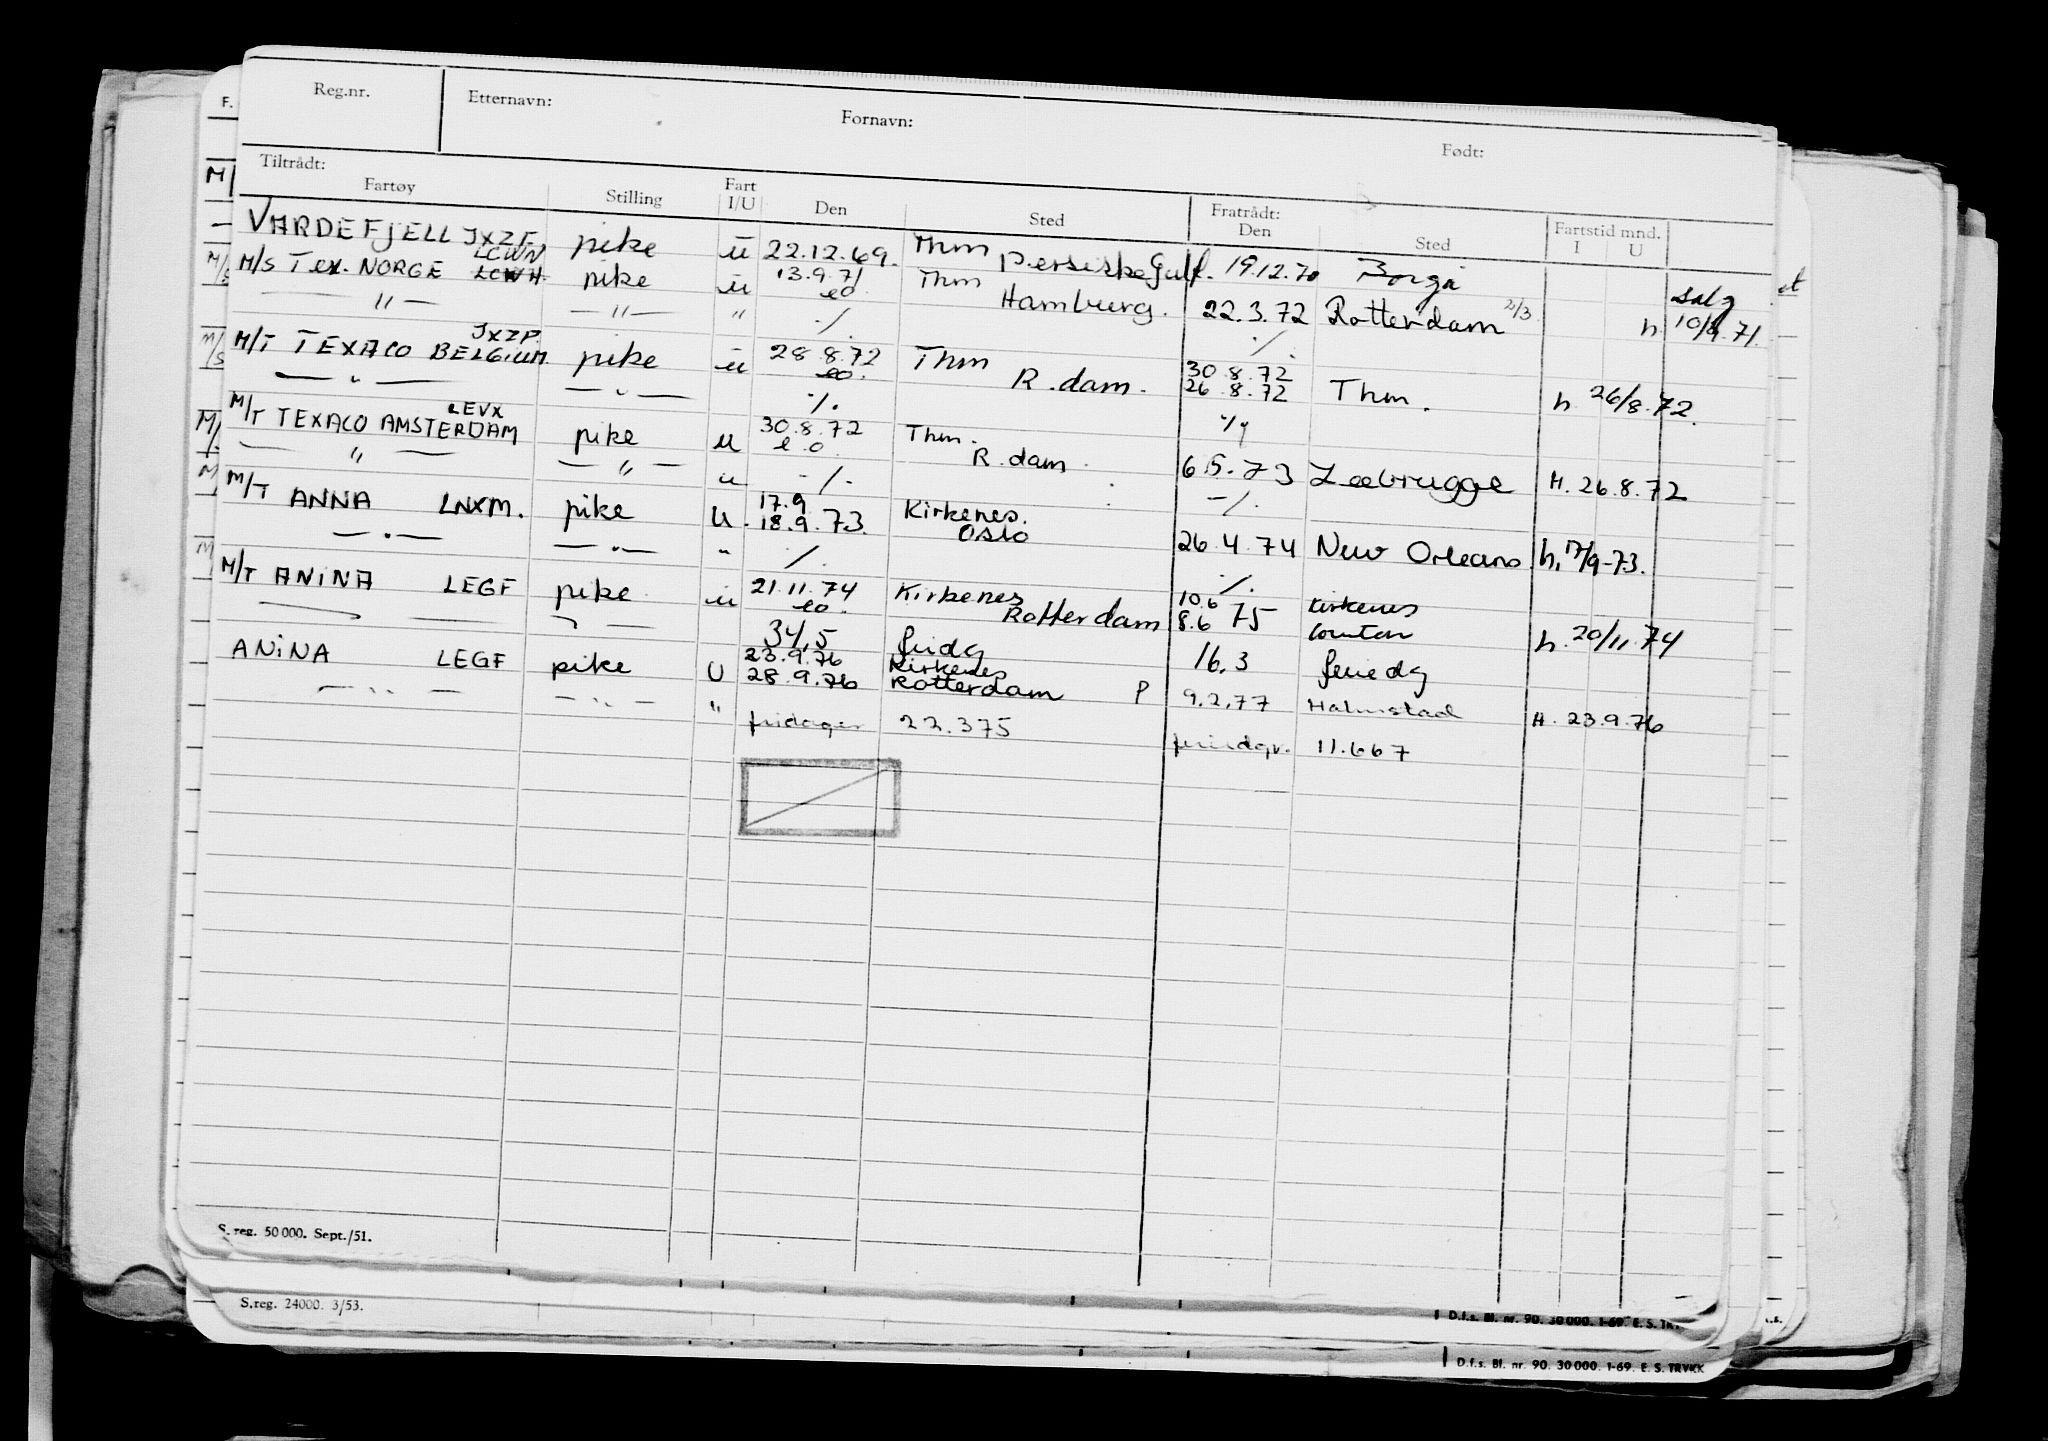 Reg.nr. Etternavn: Fornavn: Født:
Tiltrådt: Fratrådt:
Fartøy Stilling Fart I/U Den Sted Den Sted Fartstid mnd. I U
VARDEFJELL JXZF pike u 22.12.69. Thm Persiske Gulf. 19.12.70 Borgå salg
M/S Tex. NORGE LCWN LCWH pike u 13.9.71 eo Thm Hamburg. 22.3.72 Rotterdam 2/3 h 10/9.71.
— " — — " — " ·/. ·/.
M/T TEXACO BELGIUM JXZP. pike u 28.8.72 eo. Thm R.dam. 30.8.72 26.8.72 Thm. h. 26/8.72.
— " — — " — ·/. ·/.
M/T TEXACO AMSTERDAM LEVX pike u 30.8.72 e.o. Thm. R.dam 6.5.73 Zeebrugge H. 26.8.72
— " — — " — u -/- -/.
M/T ANNA LNXM. pike U. 17.9 18.9.73. Kirkenes. Oslo 26.4.74 New Orleans h. 17/9-73.
— " — — " — " ·/. ·/.
M/T ANINA LEGF pike u 21.11.74 eo. Kirkenes Rotterdam 10.6 8.6 75 Kirkenes h. 20/11.74
34,5 fridg 16,3 feriedg
ANINA LEGF pike U 23.9.76 28.9.76 Kirkenes Rotterdam P 9.2.77 Halmstad H. 23.9.76
— " — — " — "
fridager 22.375 feriedgr. 11.667
S. reg. 50 000. Sept./51.
S.reg. 24000. 3/53.
D.f.s. Bl. nr. 90. 30 000. 1-69. E. S. TR
D.f.s. Bl. nr. 90. 30 000. 1-69. E. S. TRYKK